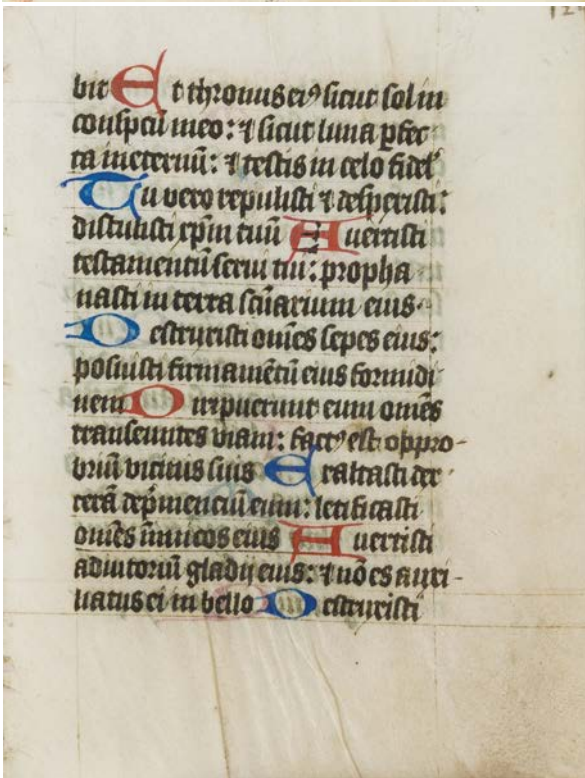 124
bit Et thronus eiꝰ sicut sol in
conspcũ meo: ⁊ sicut luna ꝑfec
ta ineternũ: ⁊ testis in celo fidel̕
Tu vero repulisti ⁊ despexisti:
distulisti xp̃m tuũ Auertisti
testamentũ serui tui: propha
nasti in terra scũarium eius
Destruxisti om̃es sepes eius:
posuisti firmamẽtũ eius formidi
nem Diripuerunt eum om̃es
transeuntes viam: factꝰ est oppro-
briũ vicinis suis Exaltasti dex
terã dep̃menciũ eum: letificasti
om̃es ĩimicos eius Auertisti
adiutoriũ gladij eius: ⁊ nõ es auxi-
liatus ei in bello Destruxisti